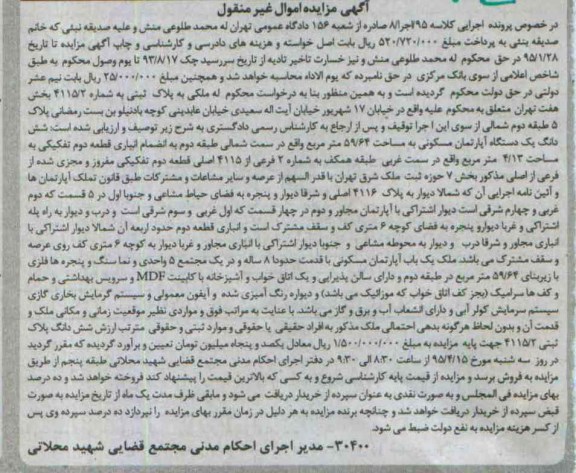 آگهی مزایده اموال غیر منقول
در خصوص پرونده اجرایی کلاسه ۹۵/اجرا/۸ صادره از شعبه ۱۵۶ دادگاه عمومی تهران له محمد طلوعی منش و علیه صدیقه نبئی که خانم
صدیقه بنئی به پرداخت مبلغ ۵۲۰/۷۲۰/۰۰۰ ریال بابت اصل خواسته و هزینه های دادرسی و کارشناسی و چاپ آگهی مزایده تا تاریخ
۹۵/۱/۲۸ در حق محکوم له محمد طلوعی منش و نیز خسارت تاخیر تادیه از تاریخ سررسید چک ۹۳/۸/۱۷ تا یوم وصول محکوم به طبق
شاخص اعلامی از سوی بانک مرکزی در حق نامبرده که یوم الاداء محاسبه خواهد شد و همچنین مبلغ ۲۵/۰۰۰/۰۰۰ ریال بابت نیم عشر
دولتی در حق دولت محکوم گردیده است و به همین منظور بنا به درخواست محکوم له ملکی به پلاک ثبتی به شماره ۴۱۱۵/۲ بخش
هفت تهران متعلق به محکوم علیه واقع در خیابان ۱۷ شهریور خیابان آیت اله سعیدی خیابان عابدینی کوچه بادنیلو بن بست رمضانی پلاک
۵ طبقه دوم شمالی از سوی این اجرا توقیف و پس از ارجاع به کارشناس رسمی دادگستری به شرح زیر توصیف و ارزیابی شده است: شش
دانگ یک دستگاه آپارتمان مسکونی به مساحت ۵۹/۶۴ متر مربع واقع در سمت شمالی طبقه دوم به انضمام انباری قطعه دوم تفکیکی به
مساحت ۴/۱۳ متر مربع واقع در سمت غربی طبقه همکف به شماره ۲ فرعی از ۴۱۱۵ اصلی قطعه دوم تفکیکی مفروز و مجزی شده از
فرعی از اصلی مذکور بخش ۷ حوزه ثبت ملک شرق تهران با قدر السهم از عرصه و سایر مشاعات و مشترکات طبق قانون تملک آپارتمان ها
و آئین نامه اجرایی آن که شمالا دیوار به پلاک ۴۱۱۶ اصلی و شرقا دیوار و پنجره به فضای حیاط مشاعی و جنوبا اول در ۵ قسمت که دوم
غربی و چهارم شرقی است دیوار اشتراکی با آپارتمان مجاور و دوم در چهار قسمت که اول غربی و سوم شرقی است و درب و دیوار به راه پله
اشتراکی و غربا دیوارو پنجره به فضای کوچه ۶ متری کف و سقف مشترک است و انباری قطعه دوم حدود اربعه آن شمالا دیوار اشتراکی با
انباری مجاور و شرقا درب و دیوار به محوطه مشاعی و جنوبا دیوار اشتراکی با انباری مجاور و غربا دیوار به کوچه ۶ متری کف روی عرصه
و سقف مشترک می باشد. ملک یک باب آپارتمان مسکونی با قدمت حدودا ۸ ساله و در یک مجتمع ۵ واحدی و نما سنگ و پنجره ها فلزی
با زیربنای ۵۹/۶۴ متر مربع در طبقه دوم و دارای سالن پذیرایی و یک اتاق خواب و آشپزخانه با کابینت MDF و سرویس بهداشتی و حمام
و کف ها سرامیک (بجز کف اتاق خواب که موزائیک می باشد) و دیواره رنگ آمیزی شده و آیفون معمولی و سیستم گرمایش بخاری گازی
سیستم سرمایش کولر آبی و دارای انشعاب آب و برق و گاز می باشد. با عنایت به مراتب فوق و مواردی نظیر موقعیت زمانی و مکانی ملک و
قدمت آن و بدون لحاظ هرگونه بدهی احتمالی ملک مذکور به افراد حقیقی یا حقوقی و موارد ثبتی و حقوقی مترتب ارزش شش دانگ پلاک
ثبتی ۴۱۱۵/۲ جهت پایه مزایده به مبلغ ۱/۵۰۰/۰۰۰/۰۰۰ ریال معادل یکصد و پنجاه میلیون تومان تعیین و برآورد گردیده که مقرر گردید
در روز سه شنبه مورخ ۹۵/۴/۱۵ از ساعت ۸:۳۰ الی ۹:۳۰ در دفتر اجرای احکام مدنی مجتمع قضایی شهید محلاتی طبقه پنجم از طریق
مزایده به فروش برسد و مزایده از قیمت پایه کارشناسی شروع و به کسی که بالاترین قیمت را پیشنهاد کند فروخته خواهد شد و ده درصد
بهای مزایده فی المجلس و به صورت نقدی به عنوان سپرده از خریدار دریافت می شود و مابقی ظرف مدت یک ماه از تاریخ مزایده به صورت
قبض سپرده از خریدار دریافت خواهد شد و چنانچه برنده مزایده به هر دلیل در زمان مقرر بهای مزایده را نپردازد ده درصد سپرده وی پس
از کسر هزینه مزایده به نفع دولت ضبط می شود.
۳۰۴۰۰- مدیر اجرای احکام مدنی مجتمع قضایی شهید محلاتی